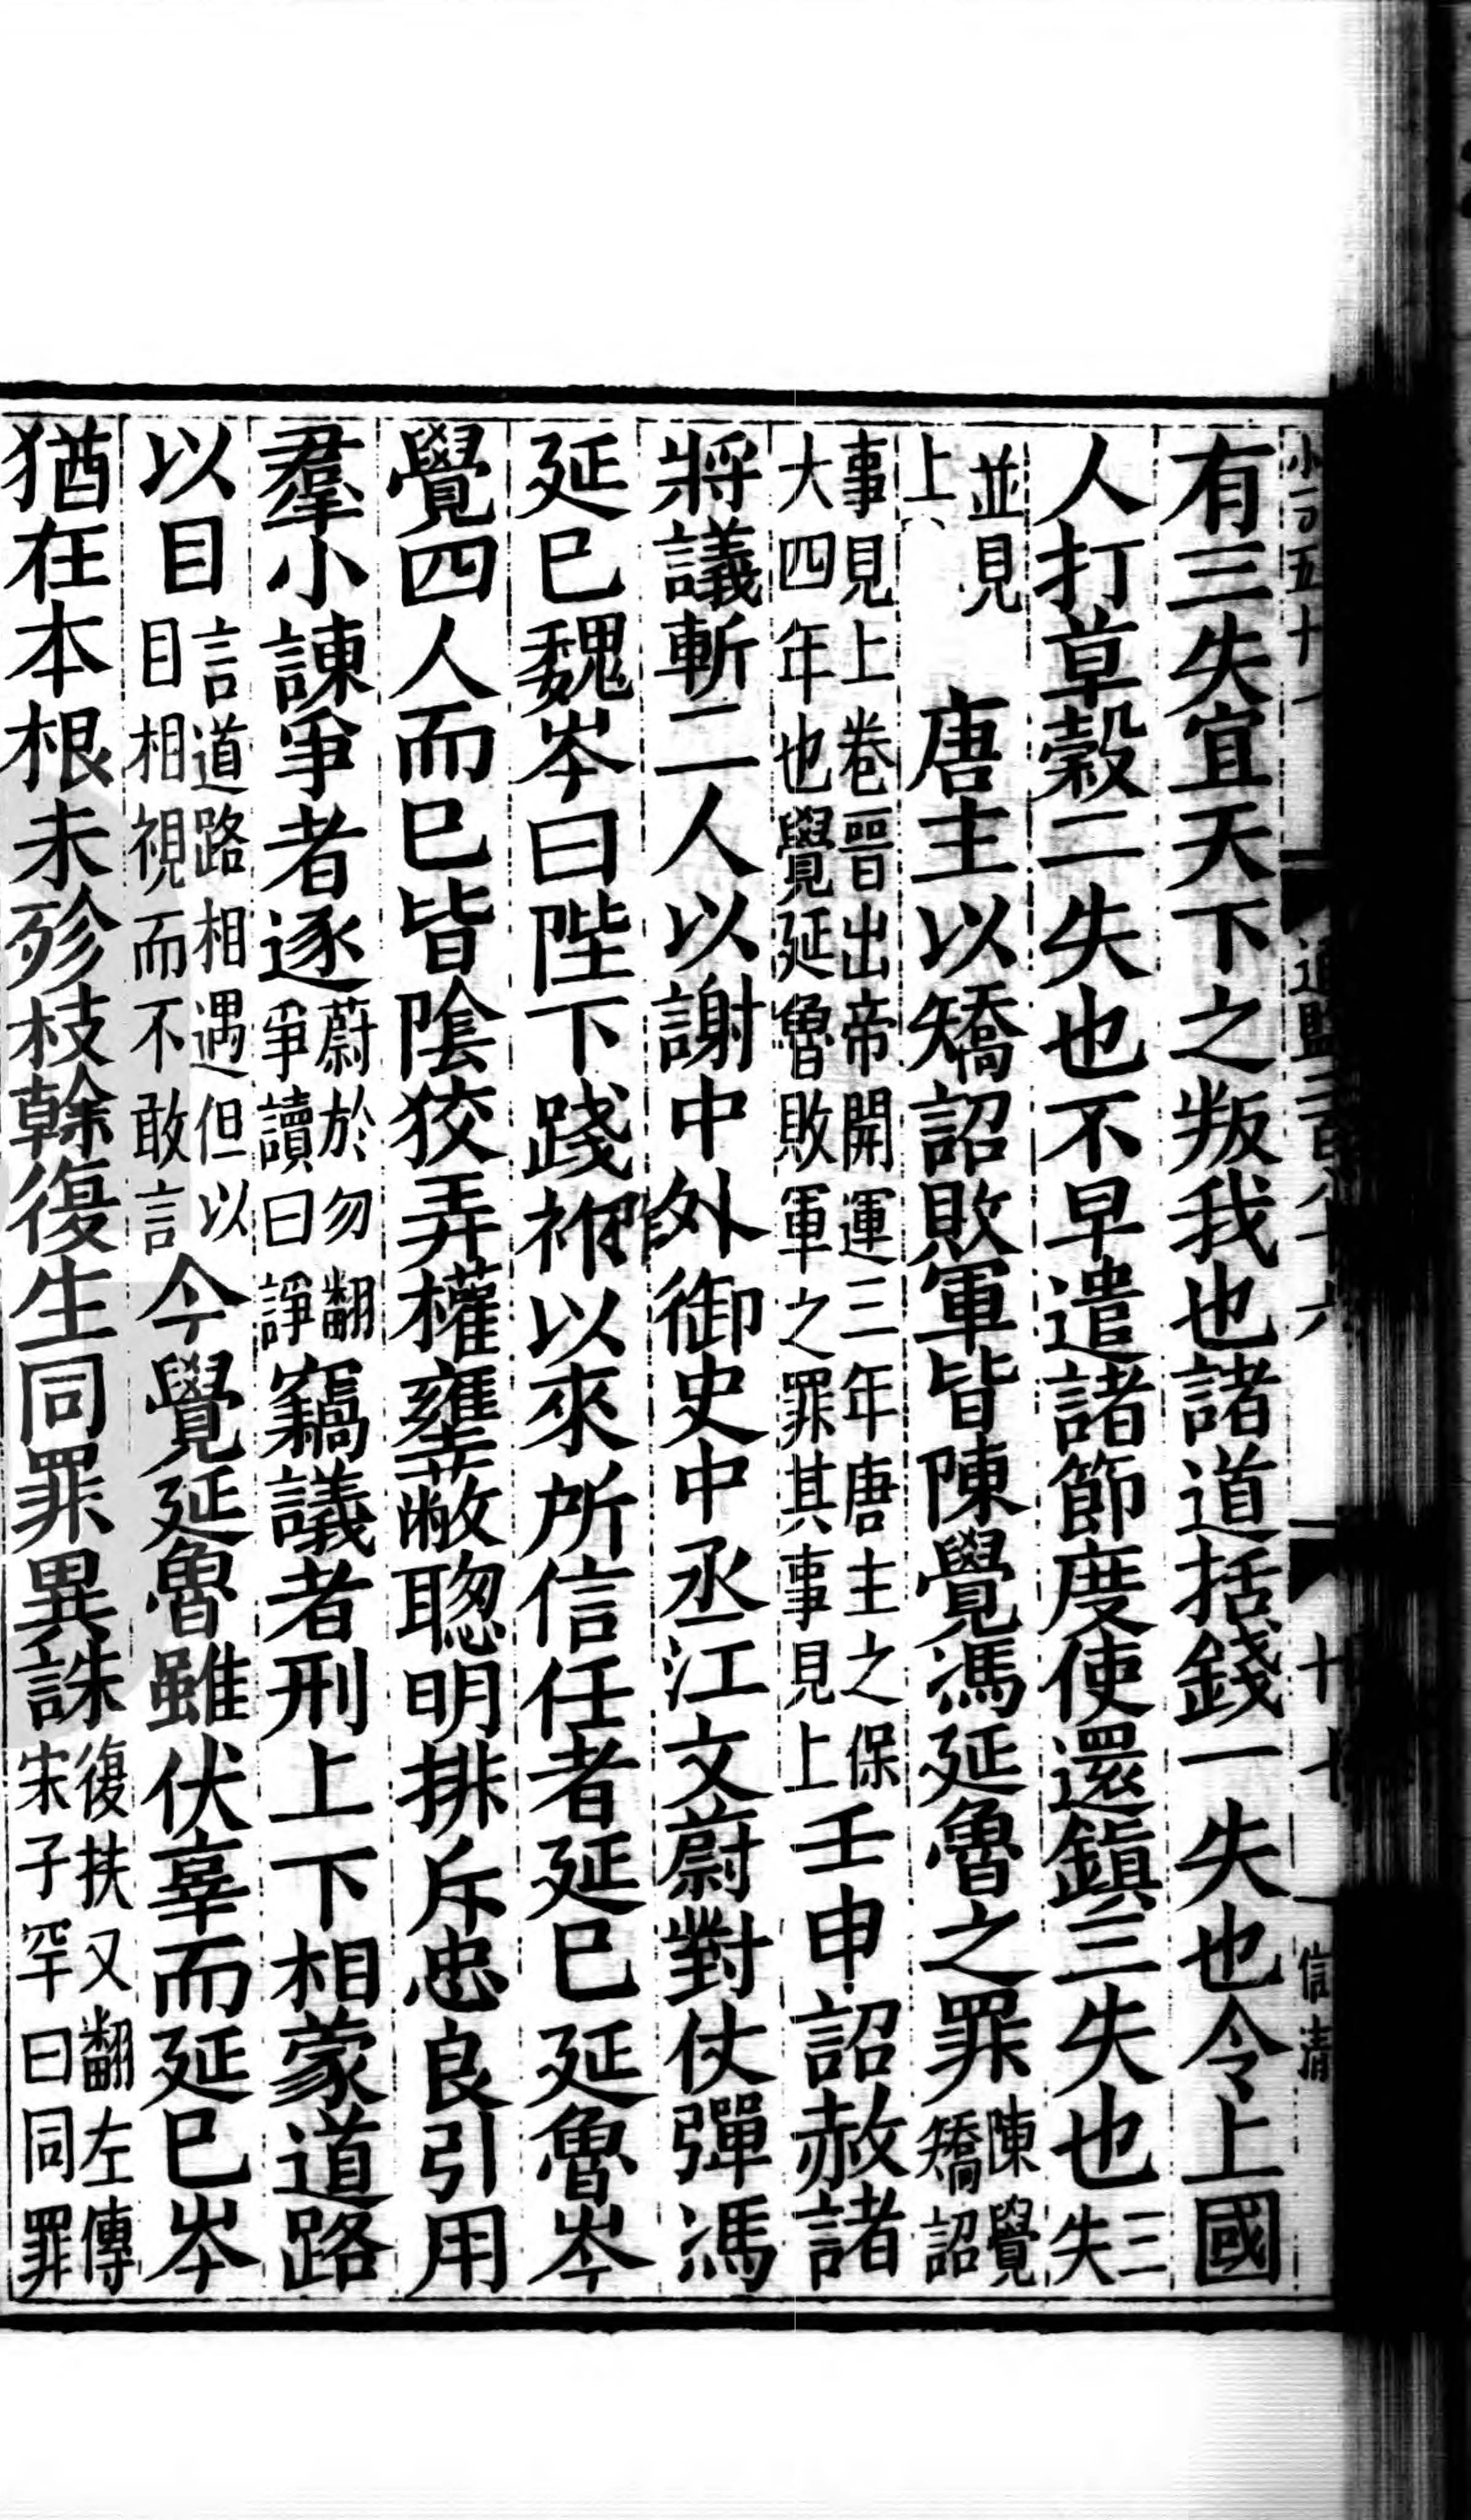 有三失宜天下之叛我也諸道括錢一失也令上國
人打草穀二失也不早遣諸節度使還鎮三失也三失
並見上唐主以矯詔敗軍皆陳覺馮延魯之罪陳覺矯詔
事見上卷晉出帝開運三年唐主之保大四年也覺延魯敗軍之罪其事見上壬申詔赦諸
將議斬二人以謝中外御史中丞江文蔚對仗彈馮
延巳魏岑曰陛下踐祚以來所信任者延巳延魯岑
覺四人而巳皆隂狡弄權壅蔽聦明排斥忠良引用
羣小諫爭者逐蔚於勿翻爭讀曰諍竊議者刑上下相蒙道路
以目言道路相遇但以目相視而不敢言今覺延魯雖伏辜而延巳岑
猶在本根未殄枝幹復生同罪異誅復扶又翻左傳宋子罕曰同罪